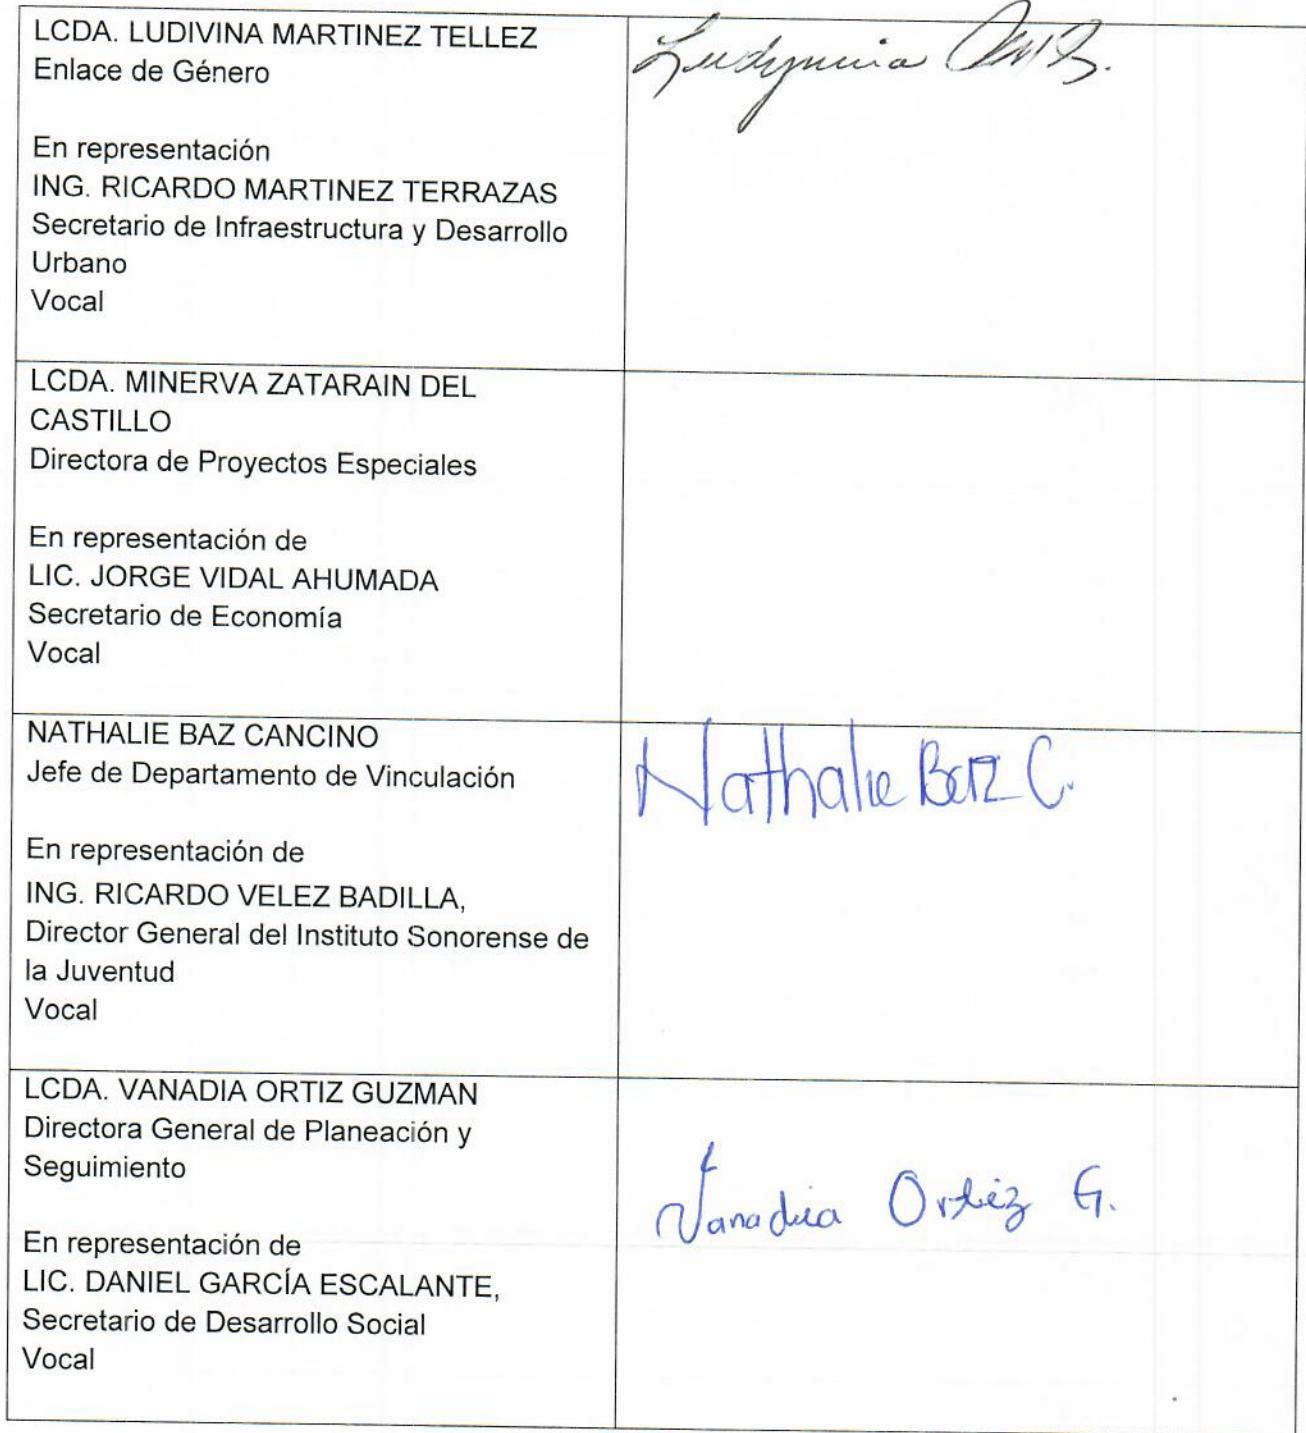 LCDA. LUDIVINA MARTINEZ TELLEZ
Enlace de Género
En representación
ING. RICARDO MARTINEZ TERRAZAS
Secretario de Infraestructura y Desarrollo
Urbano
Vocal
LCDA. MINERVA ZATARAIN DEL
CASTILLO
Directora de Proyectos Especiales
En representación de
LIC. JORGE VIDAL AHUMADA
Secretario de Economía
Vocal
NATHALIE BAZ CANCINO
Jefe de Departamento de Vinculación
Nathalie Baz C.
En representación de
ING. RICARDO VELEZ BADILLA,
Director General del Instituto Sonorense de
la Juventud
Vocal
LCDA. VANADIA ORTIZ GUZMAN
Directora General de Planeación y
Seguimiento
Vanadia Ortiz G.
En representación de
LIC. DANIEL GARCÍA ESCALANTE,
Secretario de Desarrollo Social
Vocal